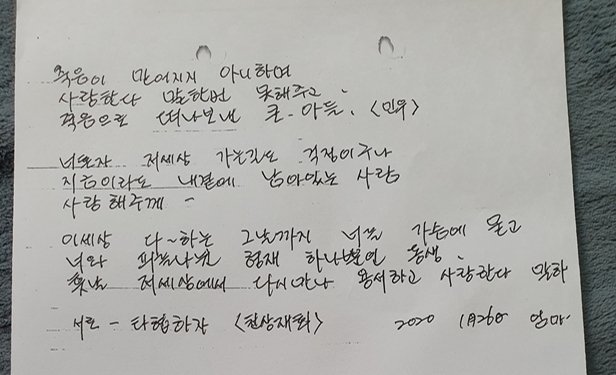 죽음이 믿어지지 아니하며
사랑한다 말한번 못해주고.
죽음으로 떠나보낸 큰-아들. <민우>
너혼자 저세상 가는길도 걱정이구나
지금이라도 내곁에 남아있는 사람
사랑 해주께 -
이세상 다~하는 그날까지 너를 가슴에 묻고
너와 피를나눈 형재 하나뿐인 동생.
훗날 저세상에서 다시만나 용서하고 사랑한다 말하
서로 - 타협하자 <천상재회> 2020 1月26日 엄마.